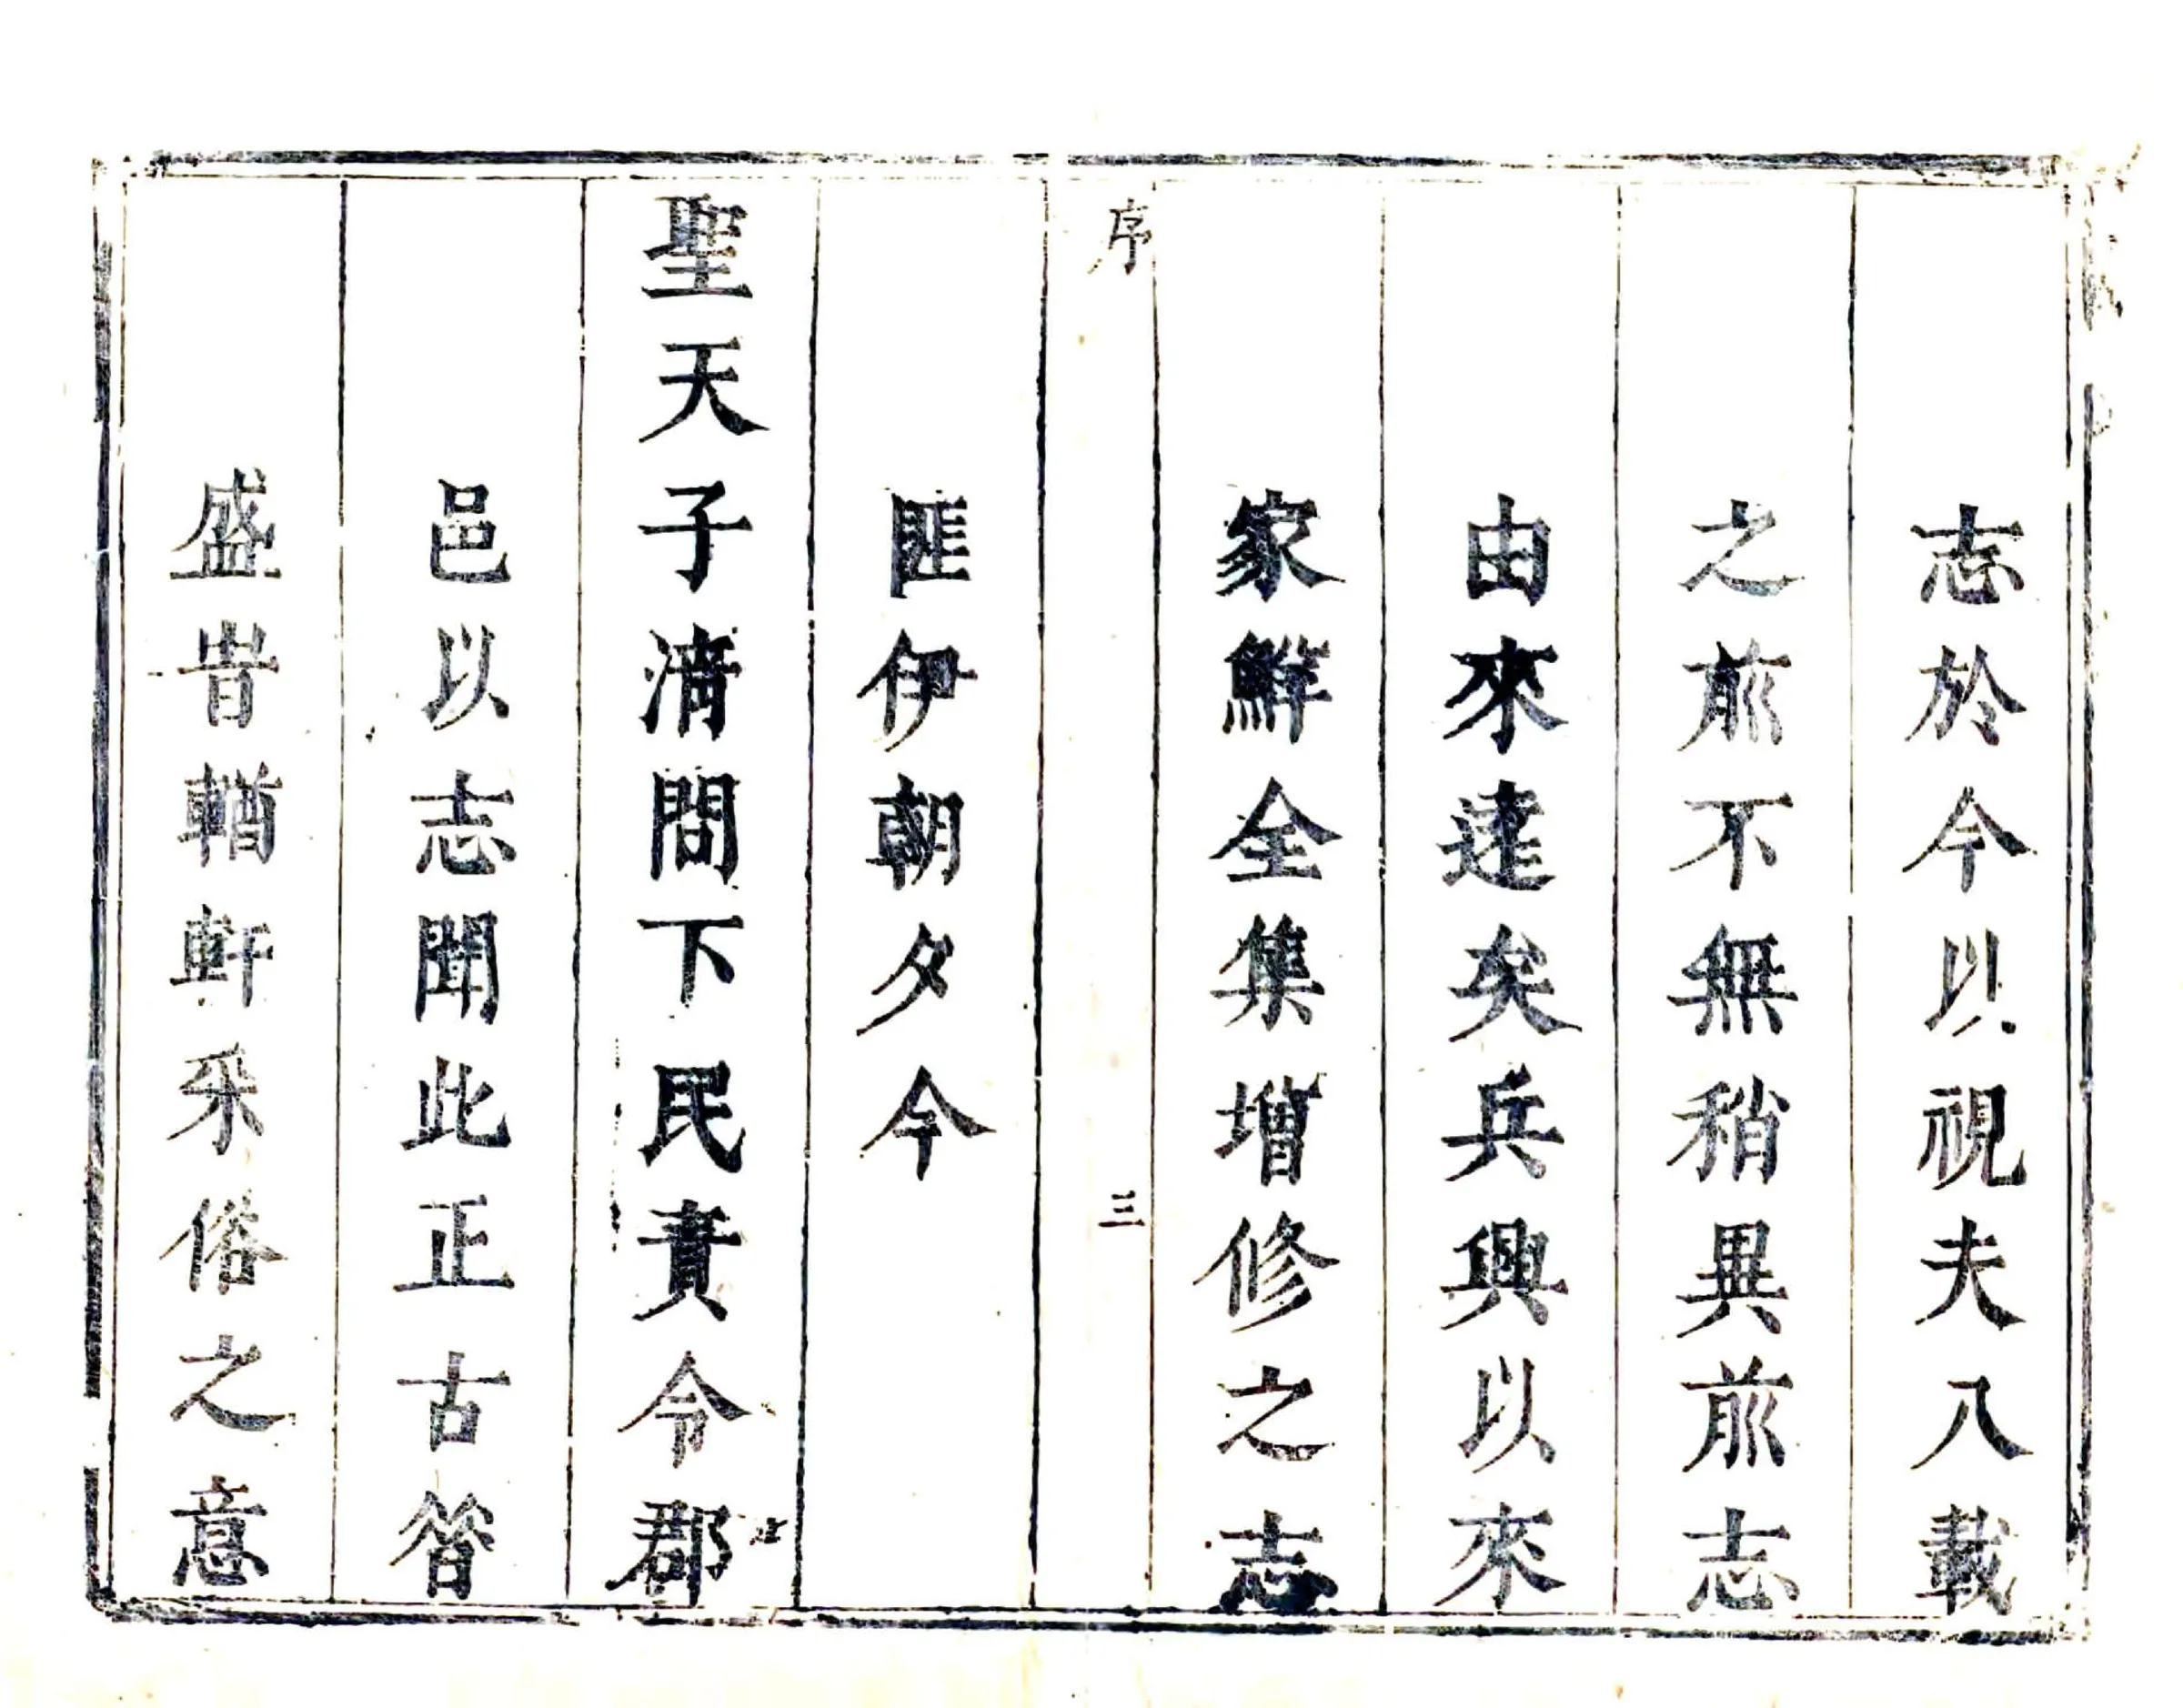 志於今以視夫八載
之前不無稍異前志
由來遠矣兵興以來
家鮮全集增修之志
序
三
匪伊朝夕今
聖天子清問下民責令郡
邑以志聞此正古昔
盛時輶軒采俗之意